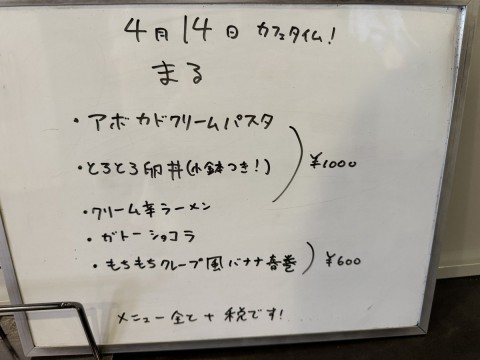 4月14日 カフェタイム!
まる
・アボカドクリームパスタ
・とろとろ卵丼(小鉢つき!)
¥1000
・クリーム辛ラーメン
・ガトーショコラ
・もちもちクレープ風バナナ春巻
¥600
メニュー全て+税です!